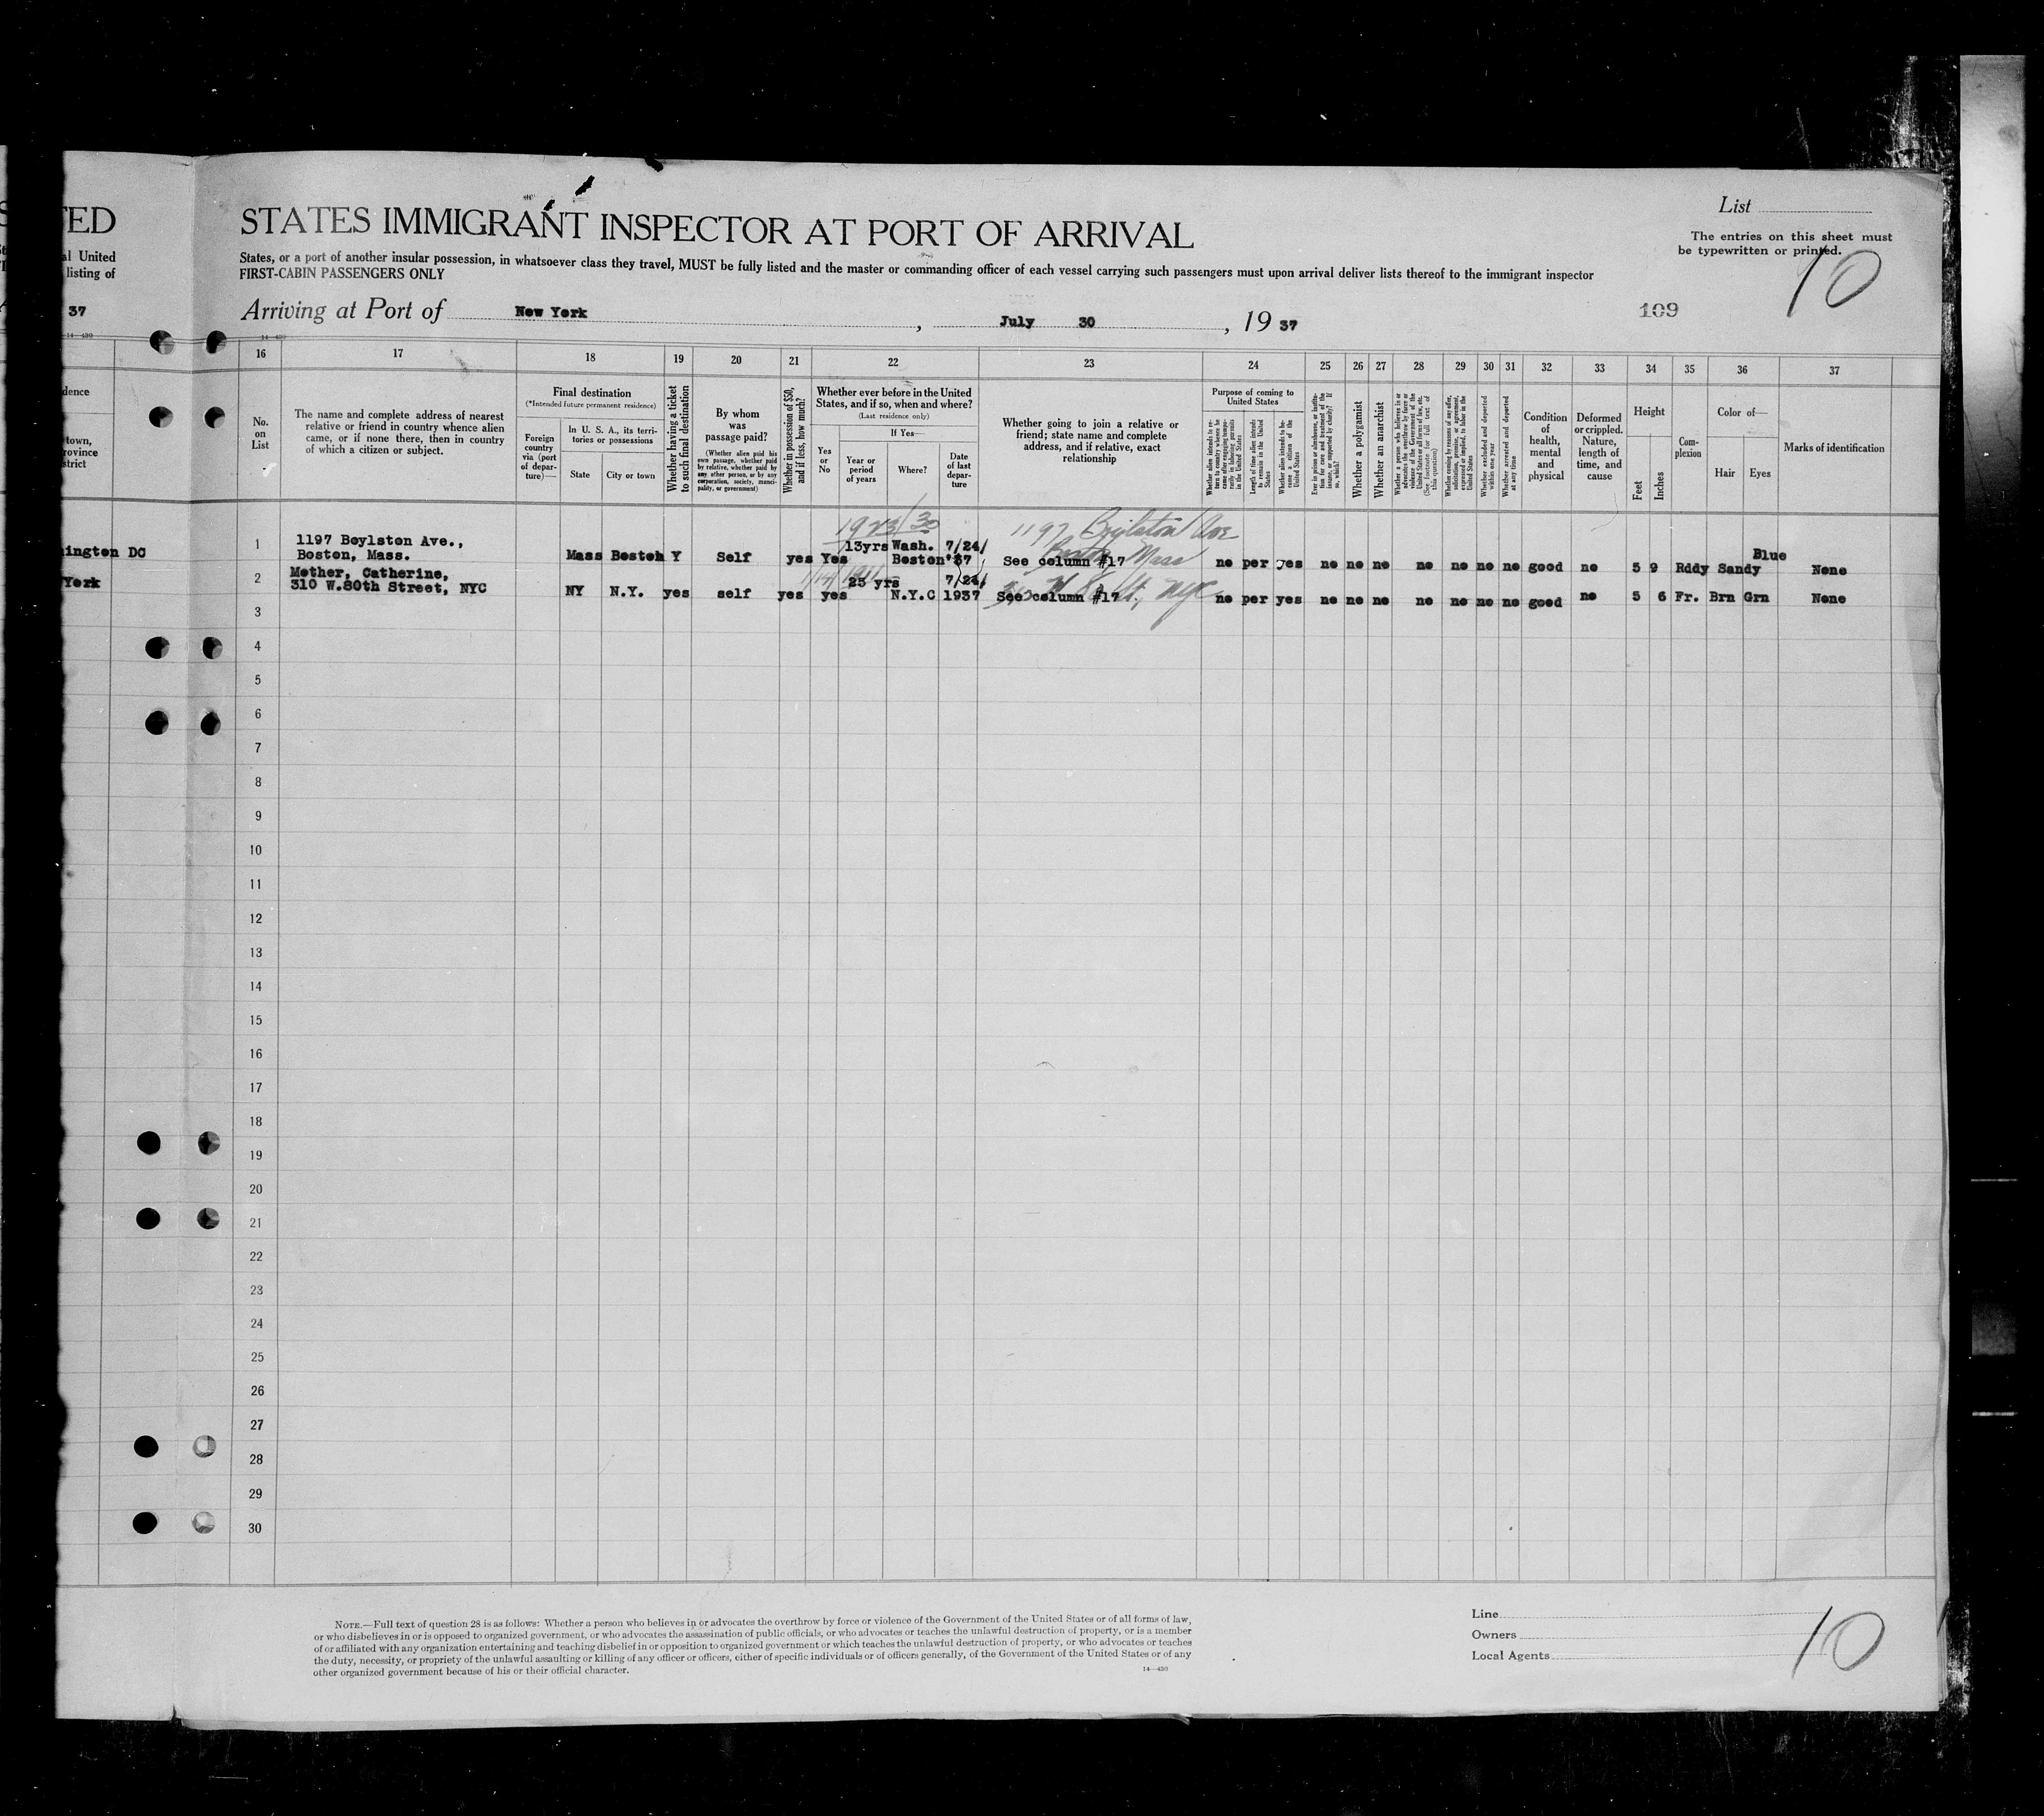 TED
STATES IMMIGRANT INSPECTOR AT PORT OF ARRIVAL
List
The entries on this sheet must
be typewritten or printed.
al United
listing of
States, or a port of another insular possession, in whatsoever class they travel, MUST be fully listed and the master or commanding officer of each vessel carrying such passengers must upon arrival deliver lists thereof to the immigrant inspector
FIRST-CABIN PASSENGERS ONLY
10
37
Arriving at Port of New York , July 30 , 19 37
109
14—430
16 17 18 19 20 21 22 23 24 25 26 27 28 29 30 31 32 33 34 35 36 37
dence
town,
rovince
strict
No.
on
List
The name and complete address of nearest
relative or friend in country whence alien
came, or if none there, then in country
of which a citizen or subject.
Final destination
(*Intended future permanent residence)
Foreign
country
via (port
of depar-
ture)—
In U. S. A., its terri-
tories or possessions
State
City or town
Whether having a ticket
to such final destination
By whom
was
passage paid?
(Whether alien paid his
own passage, whether paid
by relative, whether paid by
any other person, or by any
corporation, society, munici-
pality, or government)
Whether in possession of $50,
and if less, how much?
Whether ever before in the United
States, and if so, when and where?
(Last residence only)
Yes
or
No
If Yes—
Year or
period
of years
Where?
Date
of last
depar-
ture
Whether going to join a relative or
friend; state name and complete
address, and if relative, exact
relationship
Purpose of coming to
United States
Whether alien intends to re-
turn to country whence he
came after engaging tempo-
rarily in laboring pursuits
in the United States
Length of time alien intends
to remain in the United
States
Whether alien intends to be-
come a citizen of the
United States
Ever in prison or almshouse, or institu-
tion for care and treatment of the
insane, or supported by charity? If
so, which?
Whether a polygamist
Whether an anarchist
Whether a person who believes in or
advocates the overthrow by force or
violence of the Government of the
United States or all forms of law, etc.
(See footnote for full text of
this question)
Whether coming by reasons of any offer,
solicitation, promise, or agreement,
expressed or implied, to labor in the
United States
Whether excluded and deported
within one year
Whether arrested and deported
at any time
Condition
of
health,
mental
and
physical
Deformed
or crippled.
Nature,
length of
time, and
cause
Height
Feet
Inches
Com-
plexion
Color of—
Hair
Eyes
Marks of identification
1923/30 1197 Boylston Ave
Boston Mass
ington DC 1 1197 Boylston Ave., 13yrs Wash. 7/24/ Blue
Boston, Mass. Mass Boston Y Self yes Yes Boston '37 See column #17 no per yes no no no no no no no good no 5 9 Rddy Sandy None
York 2 Mother, Catherine, 25 yrs 7/24/
310 W.80th Street, NYC NY N.Y. yes self yes yes N.Y.C 1937 See column #17 NYC no per yes no no no no no no no good no 5 6 Fr. Brn Grn None
3
4
5
6
7
8
9
10
11
12
13
14
15
16
17
18
19
20
21
22
23
24
25
26
27
28
29
30
NOTE.—Full text of question 28 is as follows: Whether a person who believes in or advocates the overthrow by force or violence of the Government of the United States or of all forms of law,
or who disbelieves in or is opposed to organized government, or who advocates the assassination of public officials, or who advocates or teaches the unlawful destruction of property, or is a member
of or affiliated with any organization entertaining and teaching disbelief in or opposition to organized government or which teaches the unlawful destruction of property, or who advocates or teaches
the duty, necessity, or propriety of the unlawful assaulting or killing of any officer or officers, either of specific individuals or of officers generally, of the Government of the United States or of any
other organized government because of his or their official character.
14—430
Line
Owners
Local Agents
10